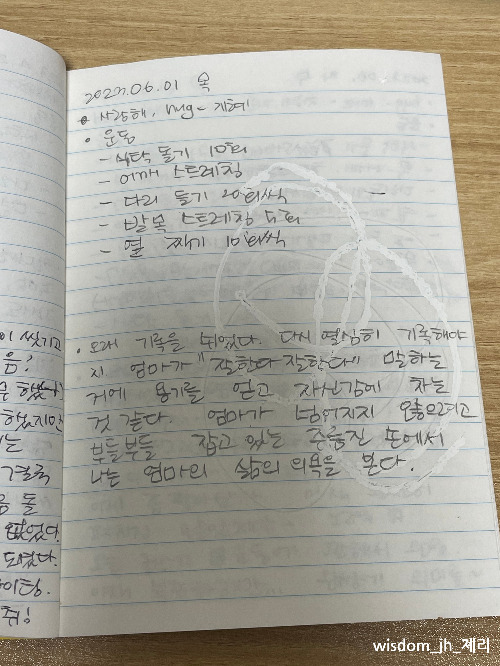 2023.06.01 목
• 사랑해, hug- 지혜
• 운동
- 식탁 돌기 10회
- 어깨 스트레칭
- 다리 들기 20회씩
- 발목 스트레칭 5회
- 옆 찍기 10회씩
• 오래 기록을 쉬었다. 다시 열심히 기록해야
지 엄마가 "잘한다 잘한다" 말하는
거에 용기를 얻고 자신감에 차는
것 같다. 엄마가 넘어지지 않으려고
부들부들 잡고 있는 주름진 손에서
나는 엄마의 삶의 의욕을 본다.
이 씻기고
음!
했지만
는
결국
돌
없었다.
되었다.
이팅.
쥐!
wisdom_jh_제리